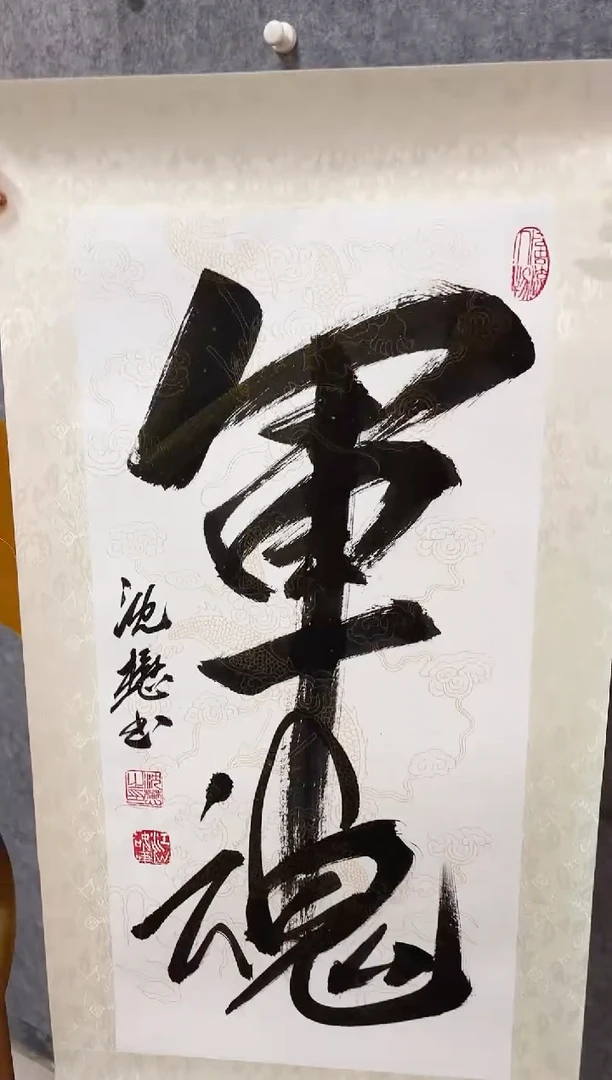 軍魂
沈懋书